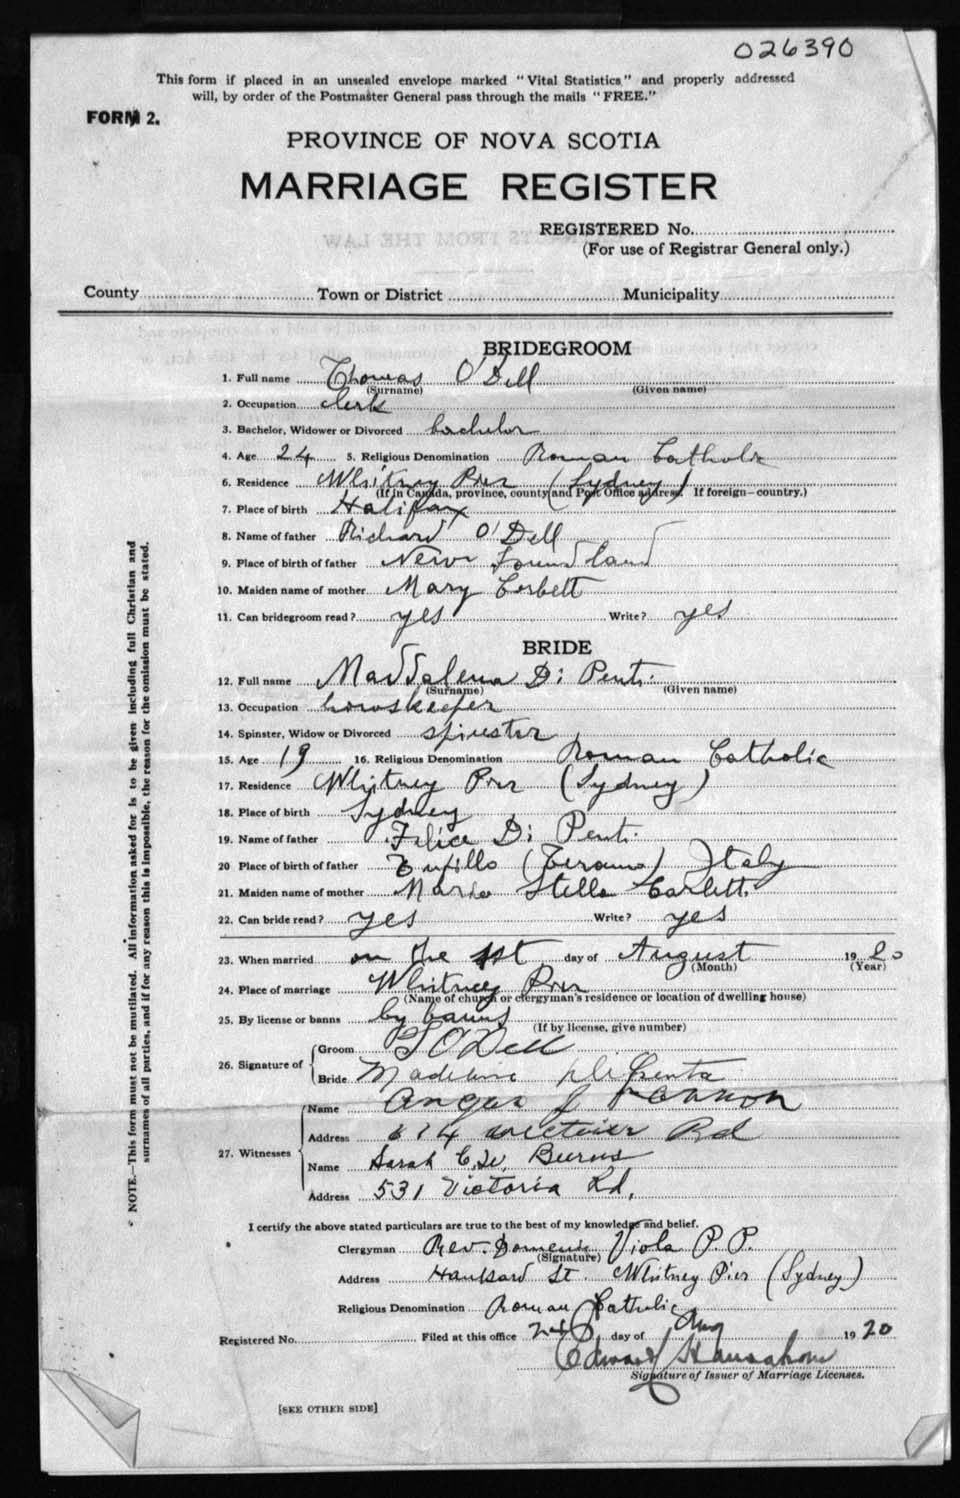 026390
This form if placed in an unsealed envelope marked "Vital Statistics" and properly addressed
will, by order of the Postmaster General pass through the mails "FREE."
FORM 2.
PROVINCE OF NOVA SCOTIA
MARRIAGE REGISTER
REGISTERED No.
(For use of Registrar General only.)
County Town or District Municipality
BRIDEGROOM
1. Full name Thomas O'Dell
(Surname) (Given name)
2. Occupation clerk
3. Bachelor, Widower or Divorced bachelor
4. Age 24 5. Religious Denomination Roman Catholic
6. Residence Whitney Pier (Sydney)
(If in Canada, province, county and Post Office address. If foreign—country.)
7. Place of birth Halifax
8. Name of father Richard O'Dell
9. Place of birth of father New Foundland
10. Maiden name of mother Mary Corbett
11. Can bridegroom read? yes Write? yes
BRIDE
12. Full name Maddalena Di Penti
(Surname) (Given name)
13. Occupation howskeeper
14. Spinster, Widow or Divorced spinster
15. Age 19 16. Religious Denomination Roman Catholic
17. Residence Whitney Pier (Sydney)
18. Place of birth Sydney
19. Name of father Felice Di Penti
20 Place of birth of father (Teramo) Italy
21. Maiden name of mother Maria Stella
22. Can bride read? yes Write? yes
23. When married on the 1st day of August 1920
(Month) (Year)
24. Place of marriage Whitney Pier
(Name of church or clergyman's residence or location of dwelling house)
25. By license or banns by banns
(If by license, give number)
26. Signature of
Groom T O'Dell
Bride Madeline
27. Witnesses
Name Angus J
Address 614 Rd
Name Sarah C. W. Burns
Address 531 Victoria Rd,
I certify the above stated particulars are true to the best of my knowledge and belief.
Clergyman Rev. Domenic Viola P. P.
(Signature)
Address Hankard St. Whitney Pier (Sydney)
Religious Denomination Roman Catholic
Registered No. Filed at this office day of Aug 1920
Edward
Signature of Issuer of Marriage Licenses.
[SEE OTHER SIDE]
NOTE.—This form must not be mutilated. All information asked for is to be given including full Christian and
surnames of all parties, and if for any reason this is impossible, the reason for the omission must be stated.